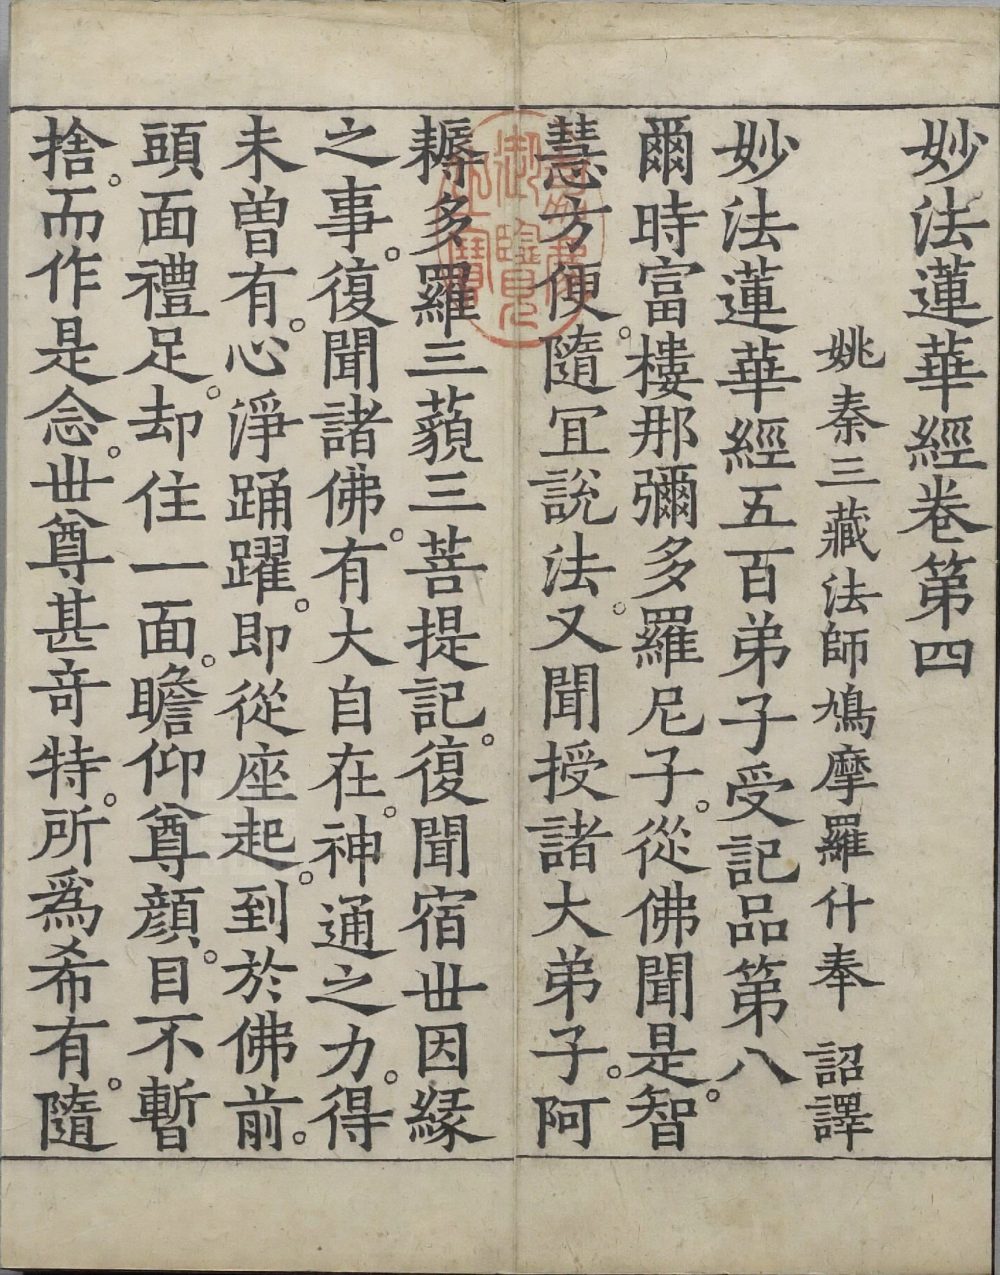 妙法蓮華經卷第四
姚秦三藏法師鳩摩羅什奉　詔譯
妙法蓮華經五百弟子受記品第八
爾時富樓那彌多羅尼子。從佛聞是智。
慧方便。隨冝說法。又聞授諸大弟子。阿
耨多羅三藐三菩提記。復聞宿丗因緣
之事。復聞諸佛。有大自在。神通之力。得
未曾有。心淨踊躍。即從座起。到於佛前。
頭面禮足。却住一面。瞻仰尊顏。目不暫
捨。而作是念。丗尊甚竒特。所爲希有。隨
御覽
寶